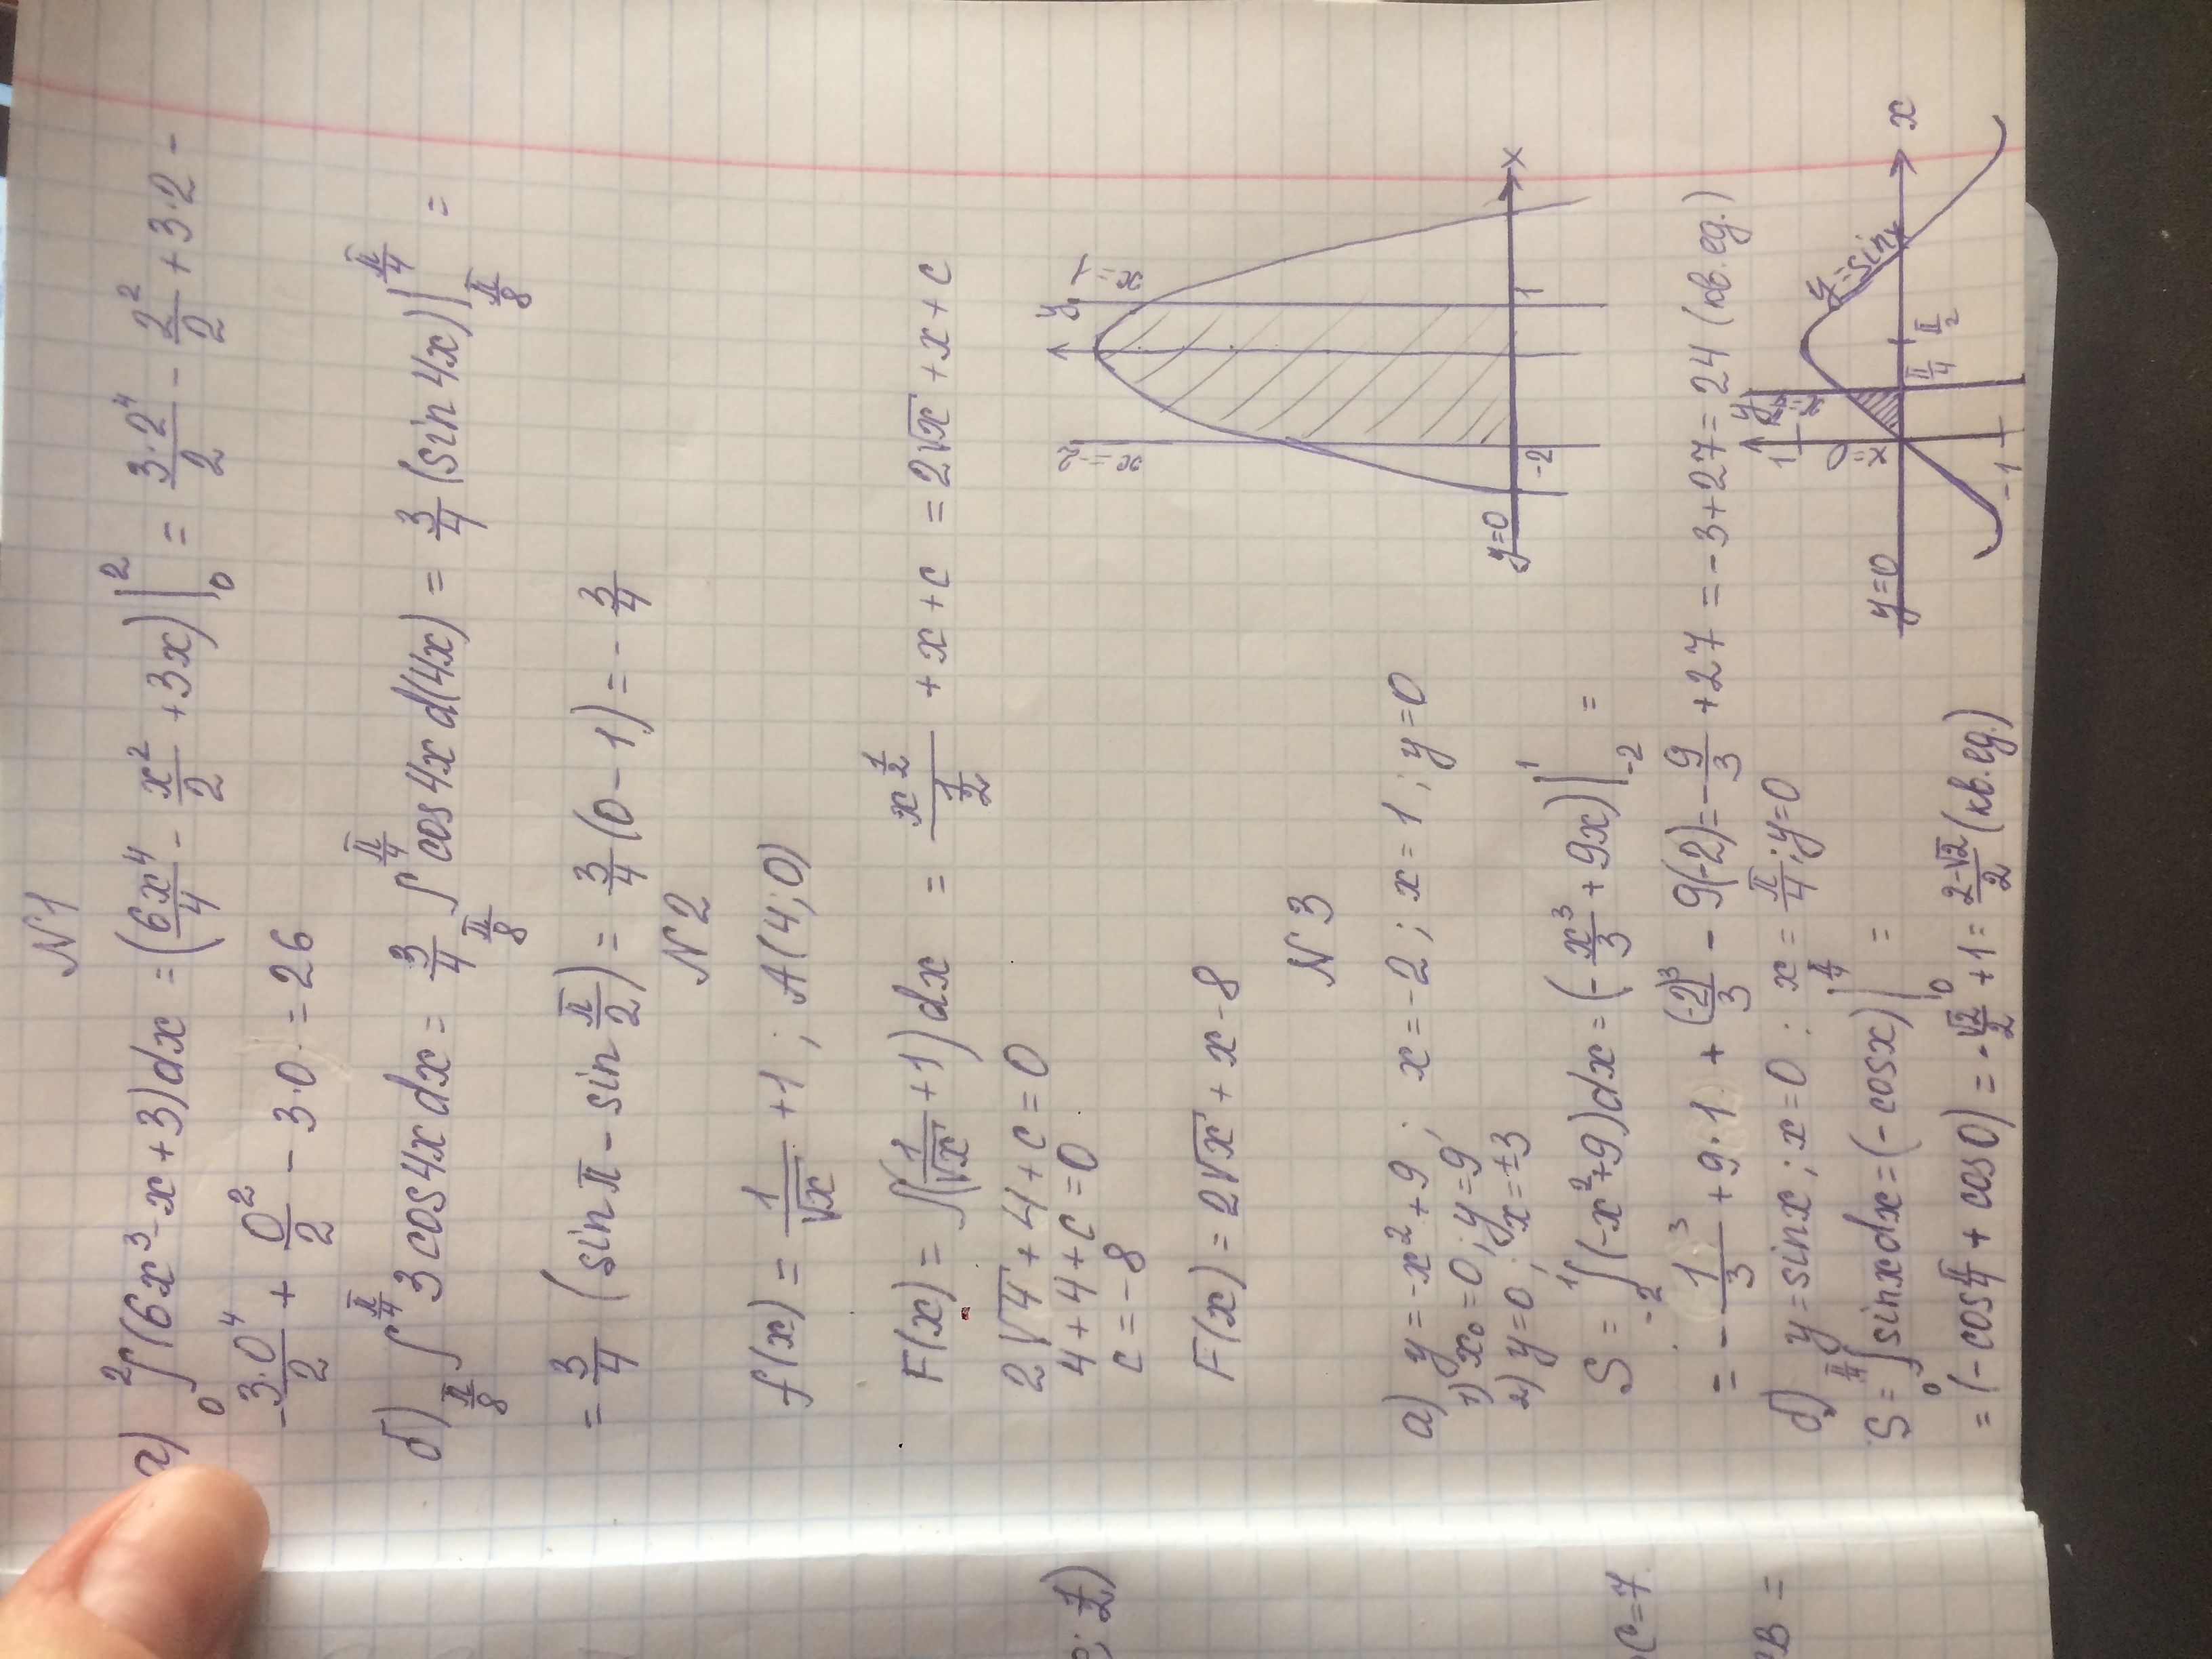 N1
а) ∫₀² (6x³ - x + 3)dx = (6x⁴/4 - x²/2 + 3x)|₀² = 3·2⁴/2 - 2²/2 + 3·2 -
- 3·0⁴/2 + 0²/2 - 3·0 = 26
б) ∫_{π/8}^{π/4} 3cos4xdx = 3/4 ∫_{π/8}^{π/4} cos4x d(4x) = 3/4 (sin4x)|_{π/8}^{π/4} =
= 3/4 (sinπ - sin π/2) = 3/4 (0 - 1) = - 3/4
N2
f(x) = 1/√x + 1 ; A(4;0)
F(x) = ∫(1/√x + 1)dx = x^{1/2}/(1/2) + x + c = 2√x + x + c
2√4 + 4 + c = 0
4 + 4 + c = 0
c = -8
F(x) = 2√x + x - 8
N3
а) y = -x² + 9 ; x = -2 ; x = 1 ; y = 0
1) x₀ = 0 ; y = 9
2) y = 0 ; x = ±3
S = ∫₋₂¹ (-x² + 9)dx = (- x³/3 + 9x)|₋₂¹ =
= - 1³/3 + 9·1 + (-2)³/3 - 9(-2) = - 9/3 + 27 = -3 + 27 = 24 (кв.ед.)
y
x=-2
x=1
y=0
-2
1
x
б) y = sinx ; x = 0 ; x = π/4 ; y = 0
S = ∫₀^{π/4} sinxdx = (-cosx)|₀^{π/4} =
= (-cos π/4 + cos0) = - √2/2 + 1 = (2-√2)/2 (кв.ед.)
y
1
x=0
x=π/4
y=sinx
y=0
π/4
π/2
-1
x
C=7
B =